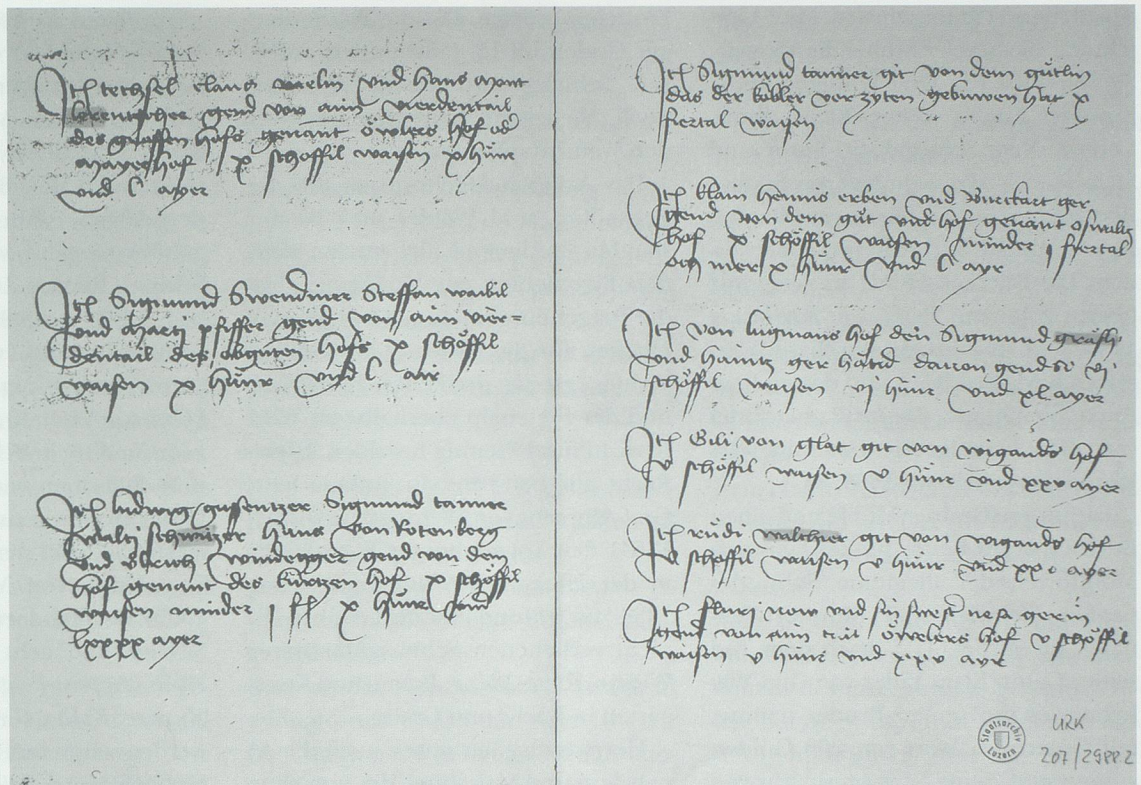 Itē techsel clans waelin und hans mont
brentscher gend von ain vierdentail
des grossen hofs genant öwlers hof od
mayer hof x schöffil waisen x hůnr
und C ayer
Itē Sigmund Swendiner Steffan waibil
und marti pfiffer gend von ain vier=
dentail des obgnten hofs x schöffil
waisen x hůnr und C air
Itē ludwig gussentzer Sigmund tanner
walti schwitzer hans von Rotenberg
und ůlrich windegger gend von dem
hof genant des kurtzen hof x schöffil
waisen minder j x hůnr und
lxxxx ayer
Itē Sigmund tanner git von dem gůtlin
das der kobler vor zyten gebuwen hat x
fiertal waisen
Itē klain hennis erben und Burckart ger
gend von dem gůt und hof genant oswalz
hof x schöffil waisen minder j fiertal
och mer x hůnr und C ayr
Itē von lugmans hof den Sigmund gräfli
und haintz ger hatnd davon gend se vj
schöffil waisen vj hůnr und xl ayer
Itē Gili von glat git von wigands hof
v schöffil waisen v hůnr und xxv ayer
Itē růdi waltzer git von wigands hof
v schöffil waisen v hůnr und xxv ayer
Itē flurj now und sin swestr nesa gerin
gend von ain tail öwelers hof v schöffil
waisen v hůnr und xxv ayr
Staatsarchiv
Luzern
URK
207/2988.2